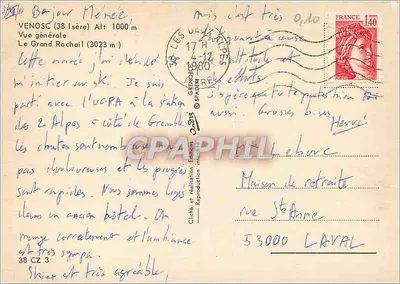 Bonjour Mémée,
VENOSC (38 Isère) Alt 1000 m
Vue générale
Le Grand Rochail (3023 m)
Cette année j'ai décidé de
m'initier au ski. Je suis
parti avec l'UCPA à la station
les 2 Alpes à côté de Grenoble
les chutes sont nombreuses
pas douloureuses et les progrès
sont rapides. Nous sommes logés
dans un ancien hôtel. On
mange correctement et l'ambiance
est très sympa.
Skier est très agréable,
38 CZ 3
mais c'est très
altitude et
efforts
j'espère que tu
aussi Grosses bises
Hervé
0,10
LES DEUX ALPES
17 H
4-12
1980
ISERE
FRANCE
1,40
CPAPHIL
Cliché et réalisation
Reproduction
GRENOBLE
© SPADEM
Lebouc
Maison de retraite
rue Ste Anne
53000 LAVAL